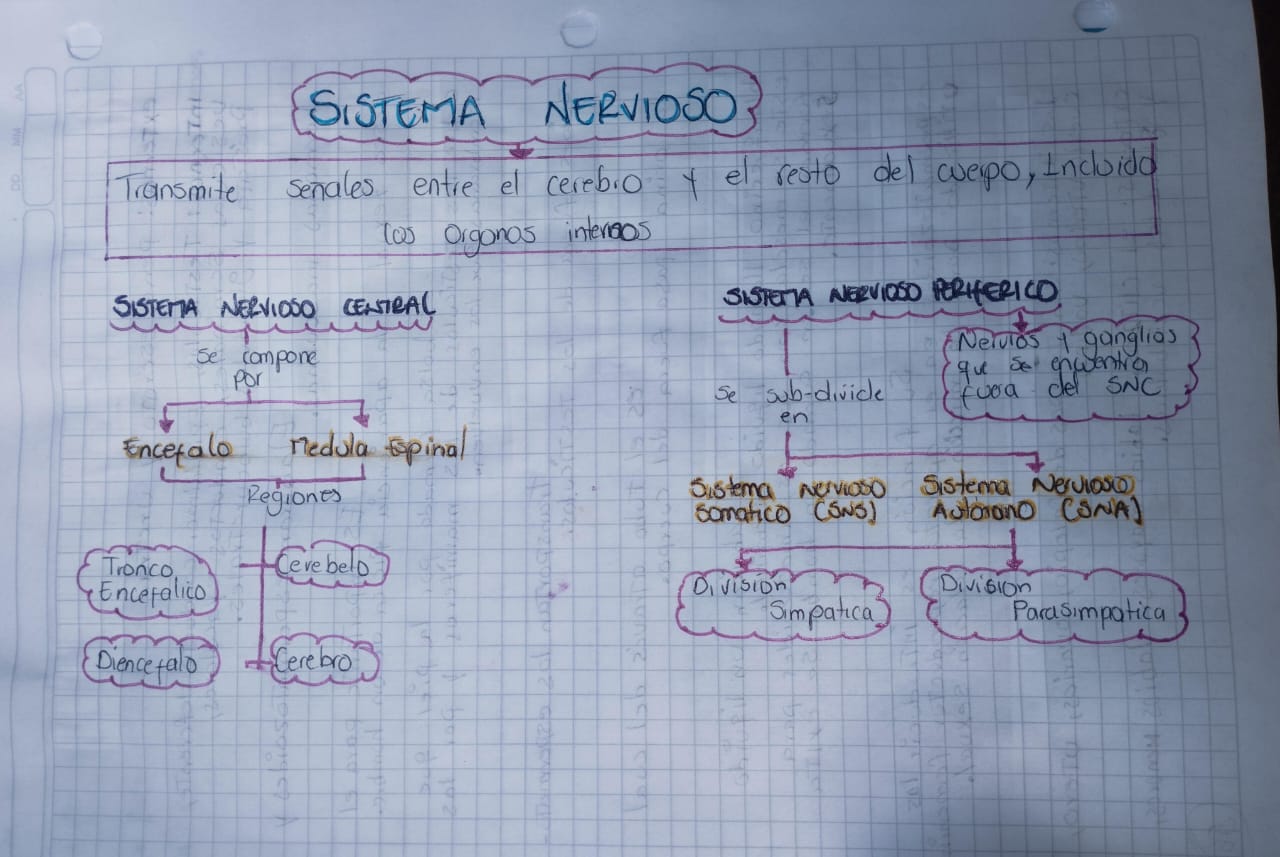 SISTEMA NERVIOSO
Transmite señales entre el cerebro y el resto del cuerpo, Incluido
los Organos internos
SISTEMA NERVIOSO CENTRAL
se compone
por
Encefalo Medula Espinal
Regiones
Tronco
Encefalico
Cerebelo
Diencefalo
Cerebro
SISTEMA NERVIOSO PERIFERICO
Nervios y ganglios
que se encuentra
fuera del SNC
Se sub-divide
en
Sistema Nervioso
Somatico (SNS)
Sistema Nervioso
Autónomo (SNA)
Division
Simpatica
Division
Parasimpatica